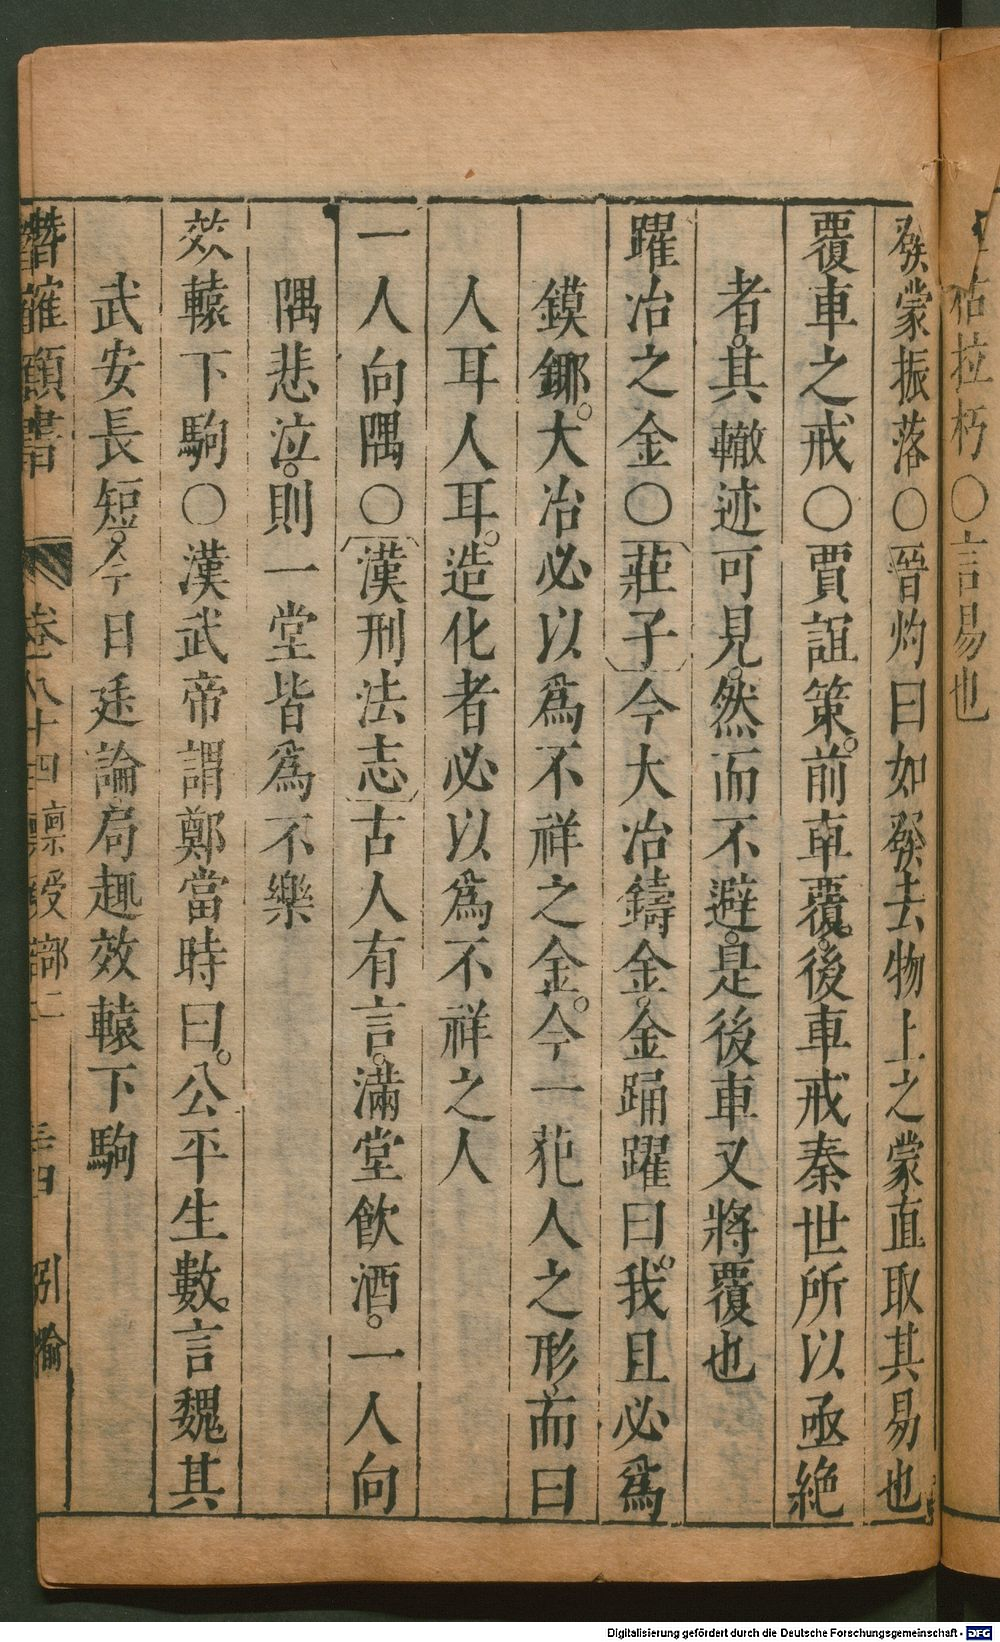 枯拉朽〇言易也
發蒙振落〇晉灼曰如發去物上之蒙直取其易也
覆車之戒〇賈誼策。前車覆。後車戒秦世所以亟絶
者。其轍迹可見。然而不避。是後車又將覆也
躍冶之金〇莊子今大冶鑄金。金踊躍曰。我且必爲
鏌鎁。大冶必以爲不祥之金。今一范人之形而曰
人耳人耳。造化者必以爲不祥之人
一人向隅〇漢刑法志古人有言。滿堂飲酒。一人向
隅悲泣。則一堂皆爲不樂
效轅下駒〇漢武帝謂鄭當時曰。公平生數。言魏其
武安長短。今日廷論局趣效轅下駒
潛確類書 卷八十四 稟受部二 引喻
Digitalisierung gefördert durch die Deutsche Forschungsgemeinschaft - DFG